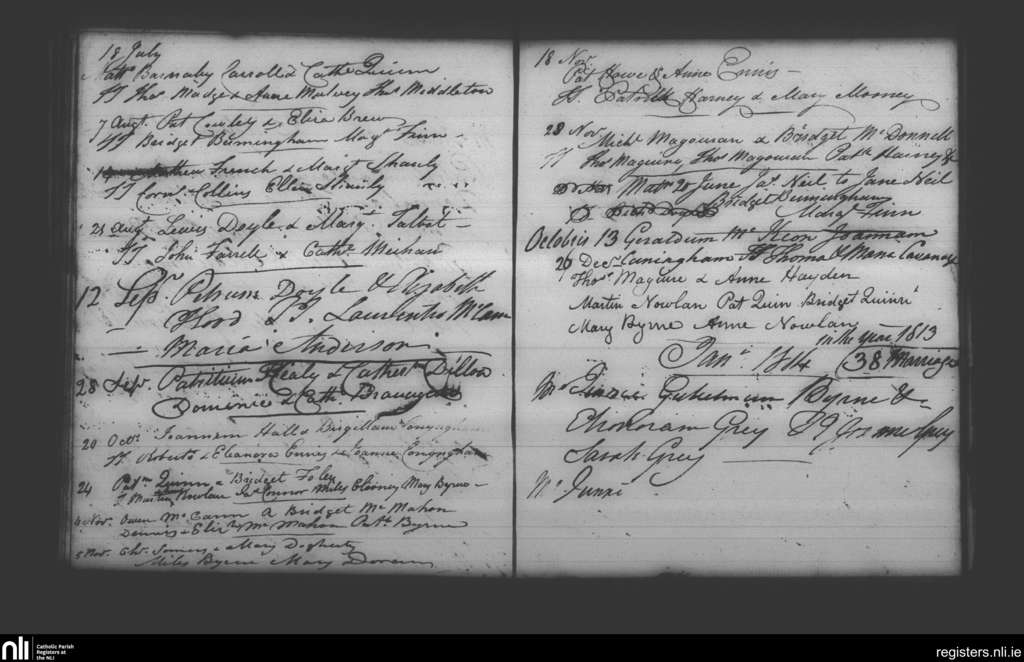 18 July
Matt. Barnaby Carroll & Cathe Quinn
TT Thos Madge & Anne Mulvey Thos Middleton
7 Augt. Pat Cowley & Eliza Brew
TT Bridget Birmingham Margt Finn
French & Margt Shanly
TT Corns Collins Ellen Shanly
21 Augt Lewis Doyle & Margt Talbot
TT John Farrell & Cathe Meehan
12 Sepr. Doyle & Elizabeth
Flood & TT. Laurentio McCann
Maria Anderson
28 Sepr. Patritium Healy & Cathern Dillon
Dominic & Cath
20 Octr. Joannem Hall &
TT Roberto & Eleanora Ennis & Joanne
24 Patm Quinn & Bridget Foley
T Martin Nowlan Pat Connor Miles Byrne
4 Novr. Owen McCann & Bridget McMahon
Dennis & Elizth McMahon Patk Byrne
5 Novr. Chr. Somers & Mary Dogherty
Miles Byrne Mary Doran
18 Novr.
Pat Howe & Anne Ennis
TT. Patrick Harney & Mary Mooney
28 Novr
Michl Magowran & Bridget McDonnell
TT Thos Maguire Thos Magowran Patk Harney &
Matr 28 June Jas. Neil to Jane Neil
Bridget Birmingham
Margt Finn
Octobris 13 Geraldum Joannam
26 Decr. Cuningham TT Thoma & Maria Cavanagh
Thos Maguire & Anne Hayden
Martin Nowlan Pat Quin Bridget Quinn
Mary Byrne Anne Nowlan
in the year 1813
Jany 1814 (38 Marriages
Gulielmum Byrne &
Grey TT
Sarah Grey
nli
Catholic Parish
Registers at
the NLI
registers.nli.ie